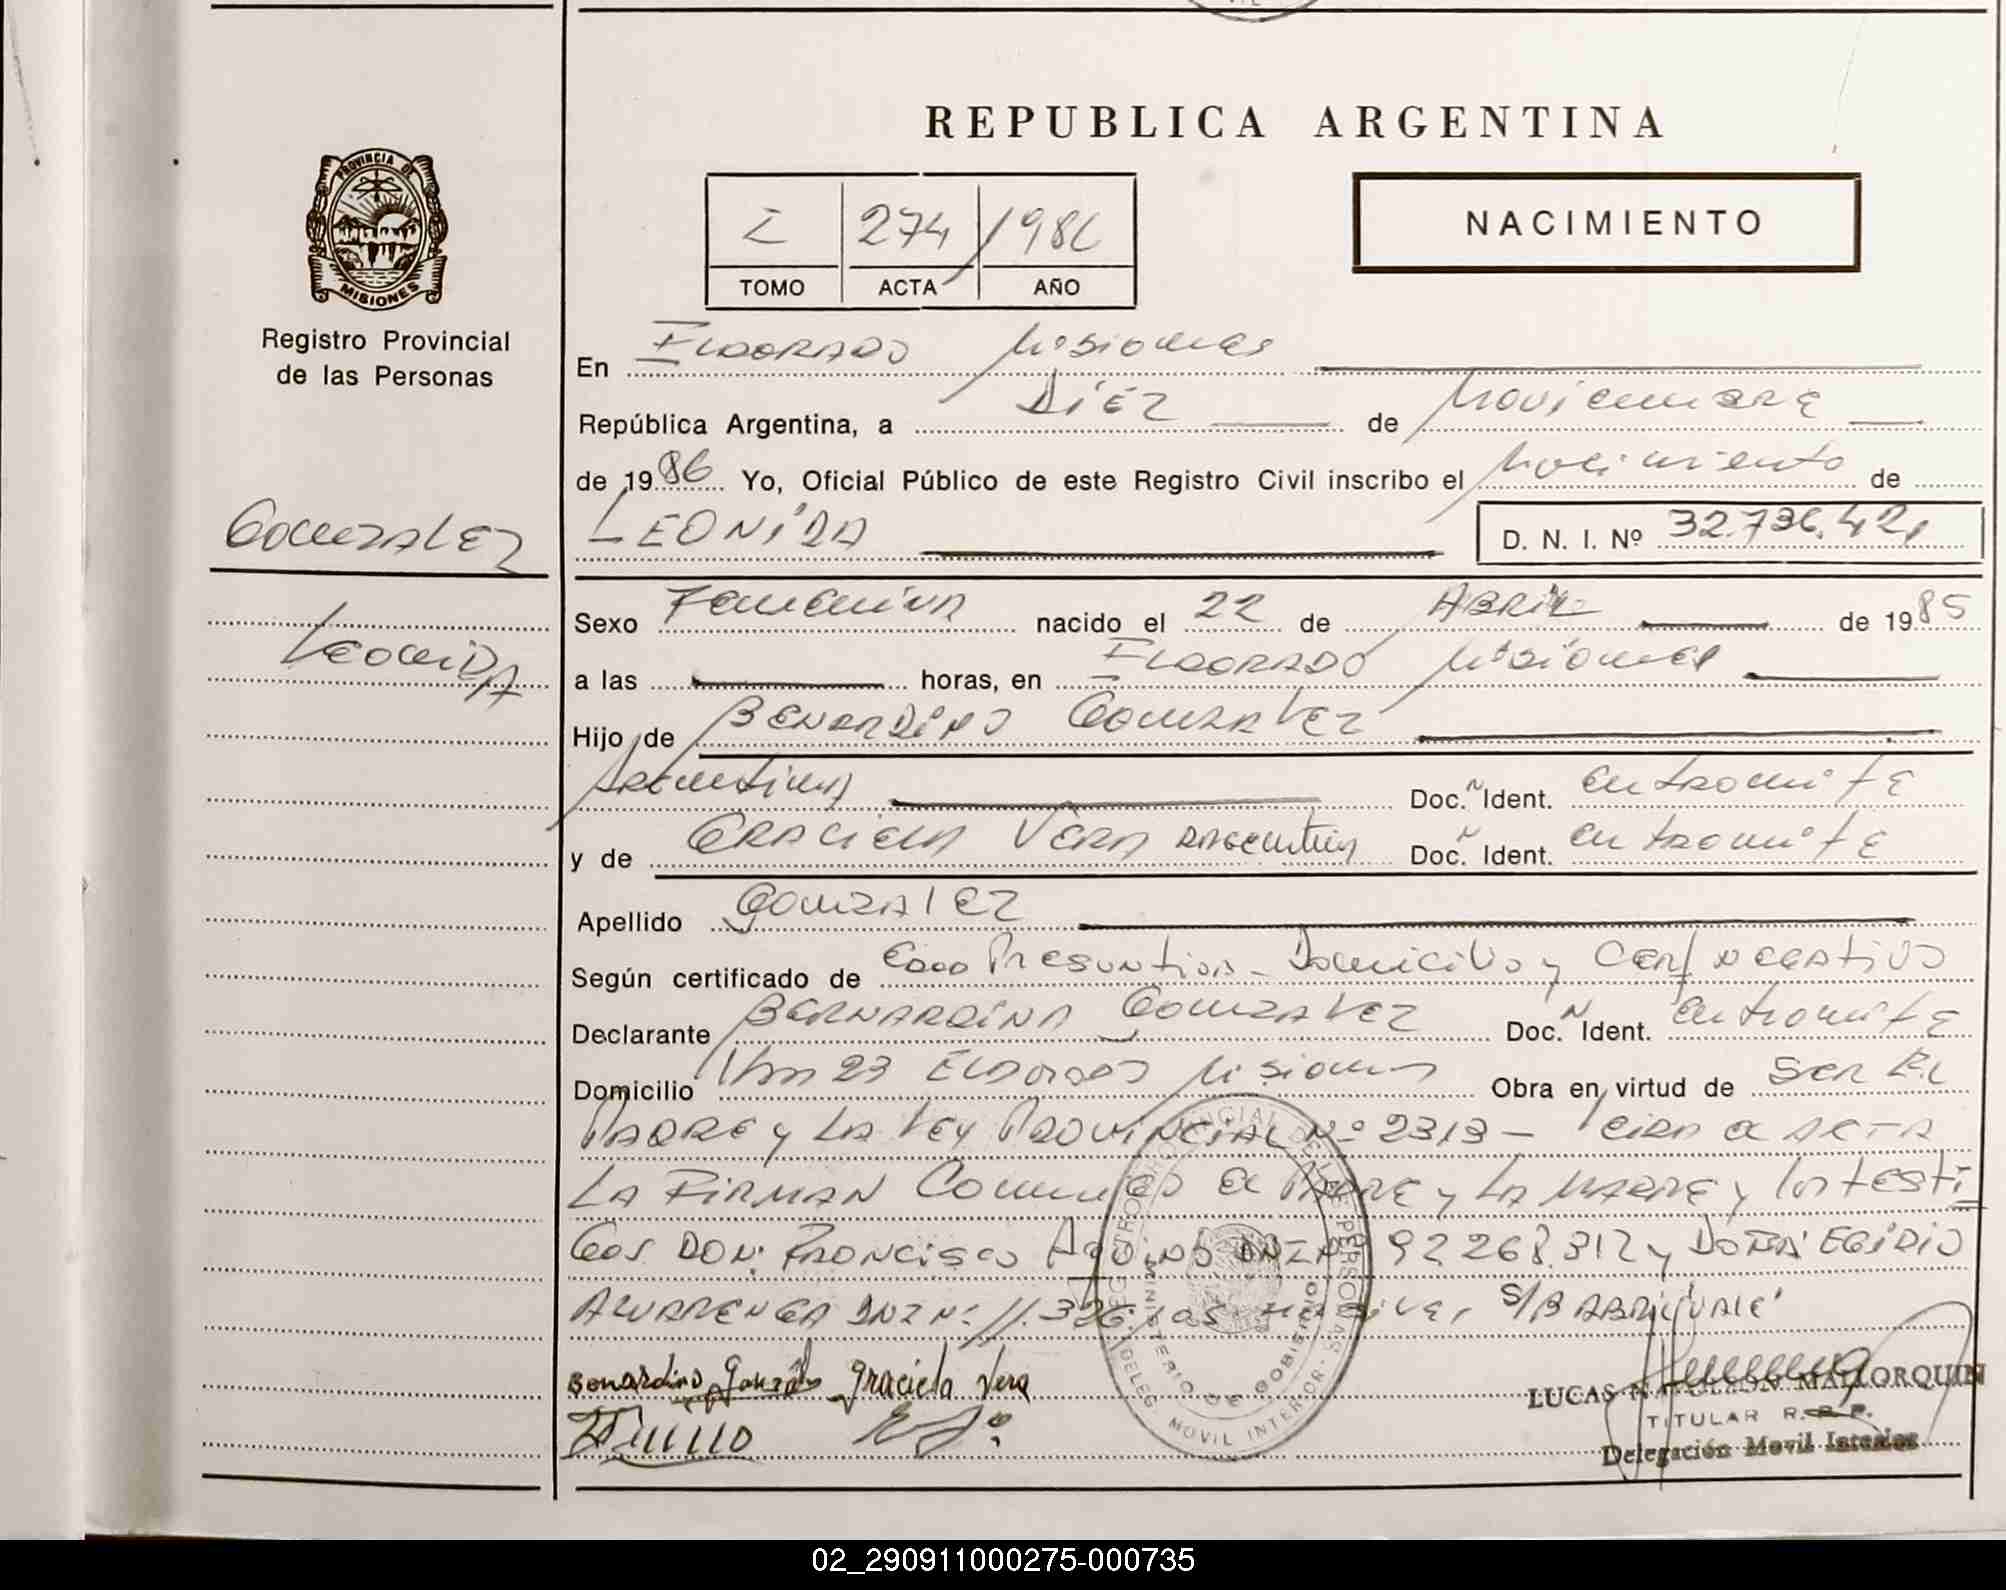 REPUBLICA ARGENTINA
PROVINCIA DE
MISIONES
Registro Provincial
de las Personas
I 274 / 1986
TOMO ACTA AÑO
NACIMIENTO
En ELDORADO Misiones
República Argentina, a DIEZ de Noviembre
de 1986 Yo, Oficial Público de este Registro Civil inscribo el Nacimiento de
GONZALEZ
LEONIDA
LEONIDA D. N. I. Nº 32.736.421
Sexo Femenina nacido el 22 de ABRIL de 1985
a las horas, en ELDORADO Misiones
Hijo de BENARDINO GONZALEZ
Argentina Doc. Ident. en tramite
y de GRACIELA VERA ARGentina Doc. Ident. en tramite
Apellido GONZALEZ
Según certificado de Edad Presuntiva - Domicilio y Cert negativo
Declarante BERNARDINA GONZALEZ Doc. Ident. en tramite
Domicilio Km 23 ELDORADO Misiones Obra en virtud de SER EL
PADRE y LA LEY PROVINCIAL Nº 2313 - Leida el ACTA
LA FIRMAN Conmigo el PADRE y LA MADRE y los testi
GOS DON: FRANCISCO AQUINO DNI Nº 92268.312 y DOÑA EGIDIO
ALVARENGA DNI Nº 11.326.105 S/B ABRIL VALE
Benardino González Graciela Vera
REGISTRO PROVINCIAL DE LAS PERSONAS
MINISTERIO DE GOBIERNO
DELEG. MOVIL INTERIOR
LUCAS NAPOLEON MALLORQUIN
TITULAR R. P. P.
Delegación Movil Interior
02_290911000275-000735